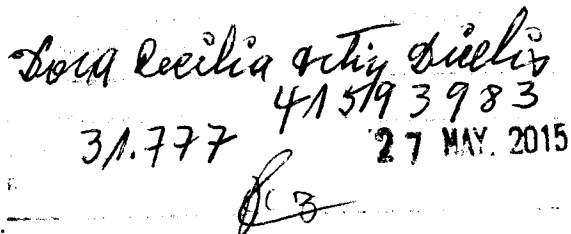 Dora Cecilia Ortiz Dicelis
41593983
31.777 27 MAY. 2015